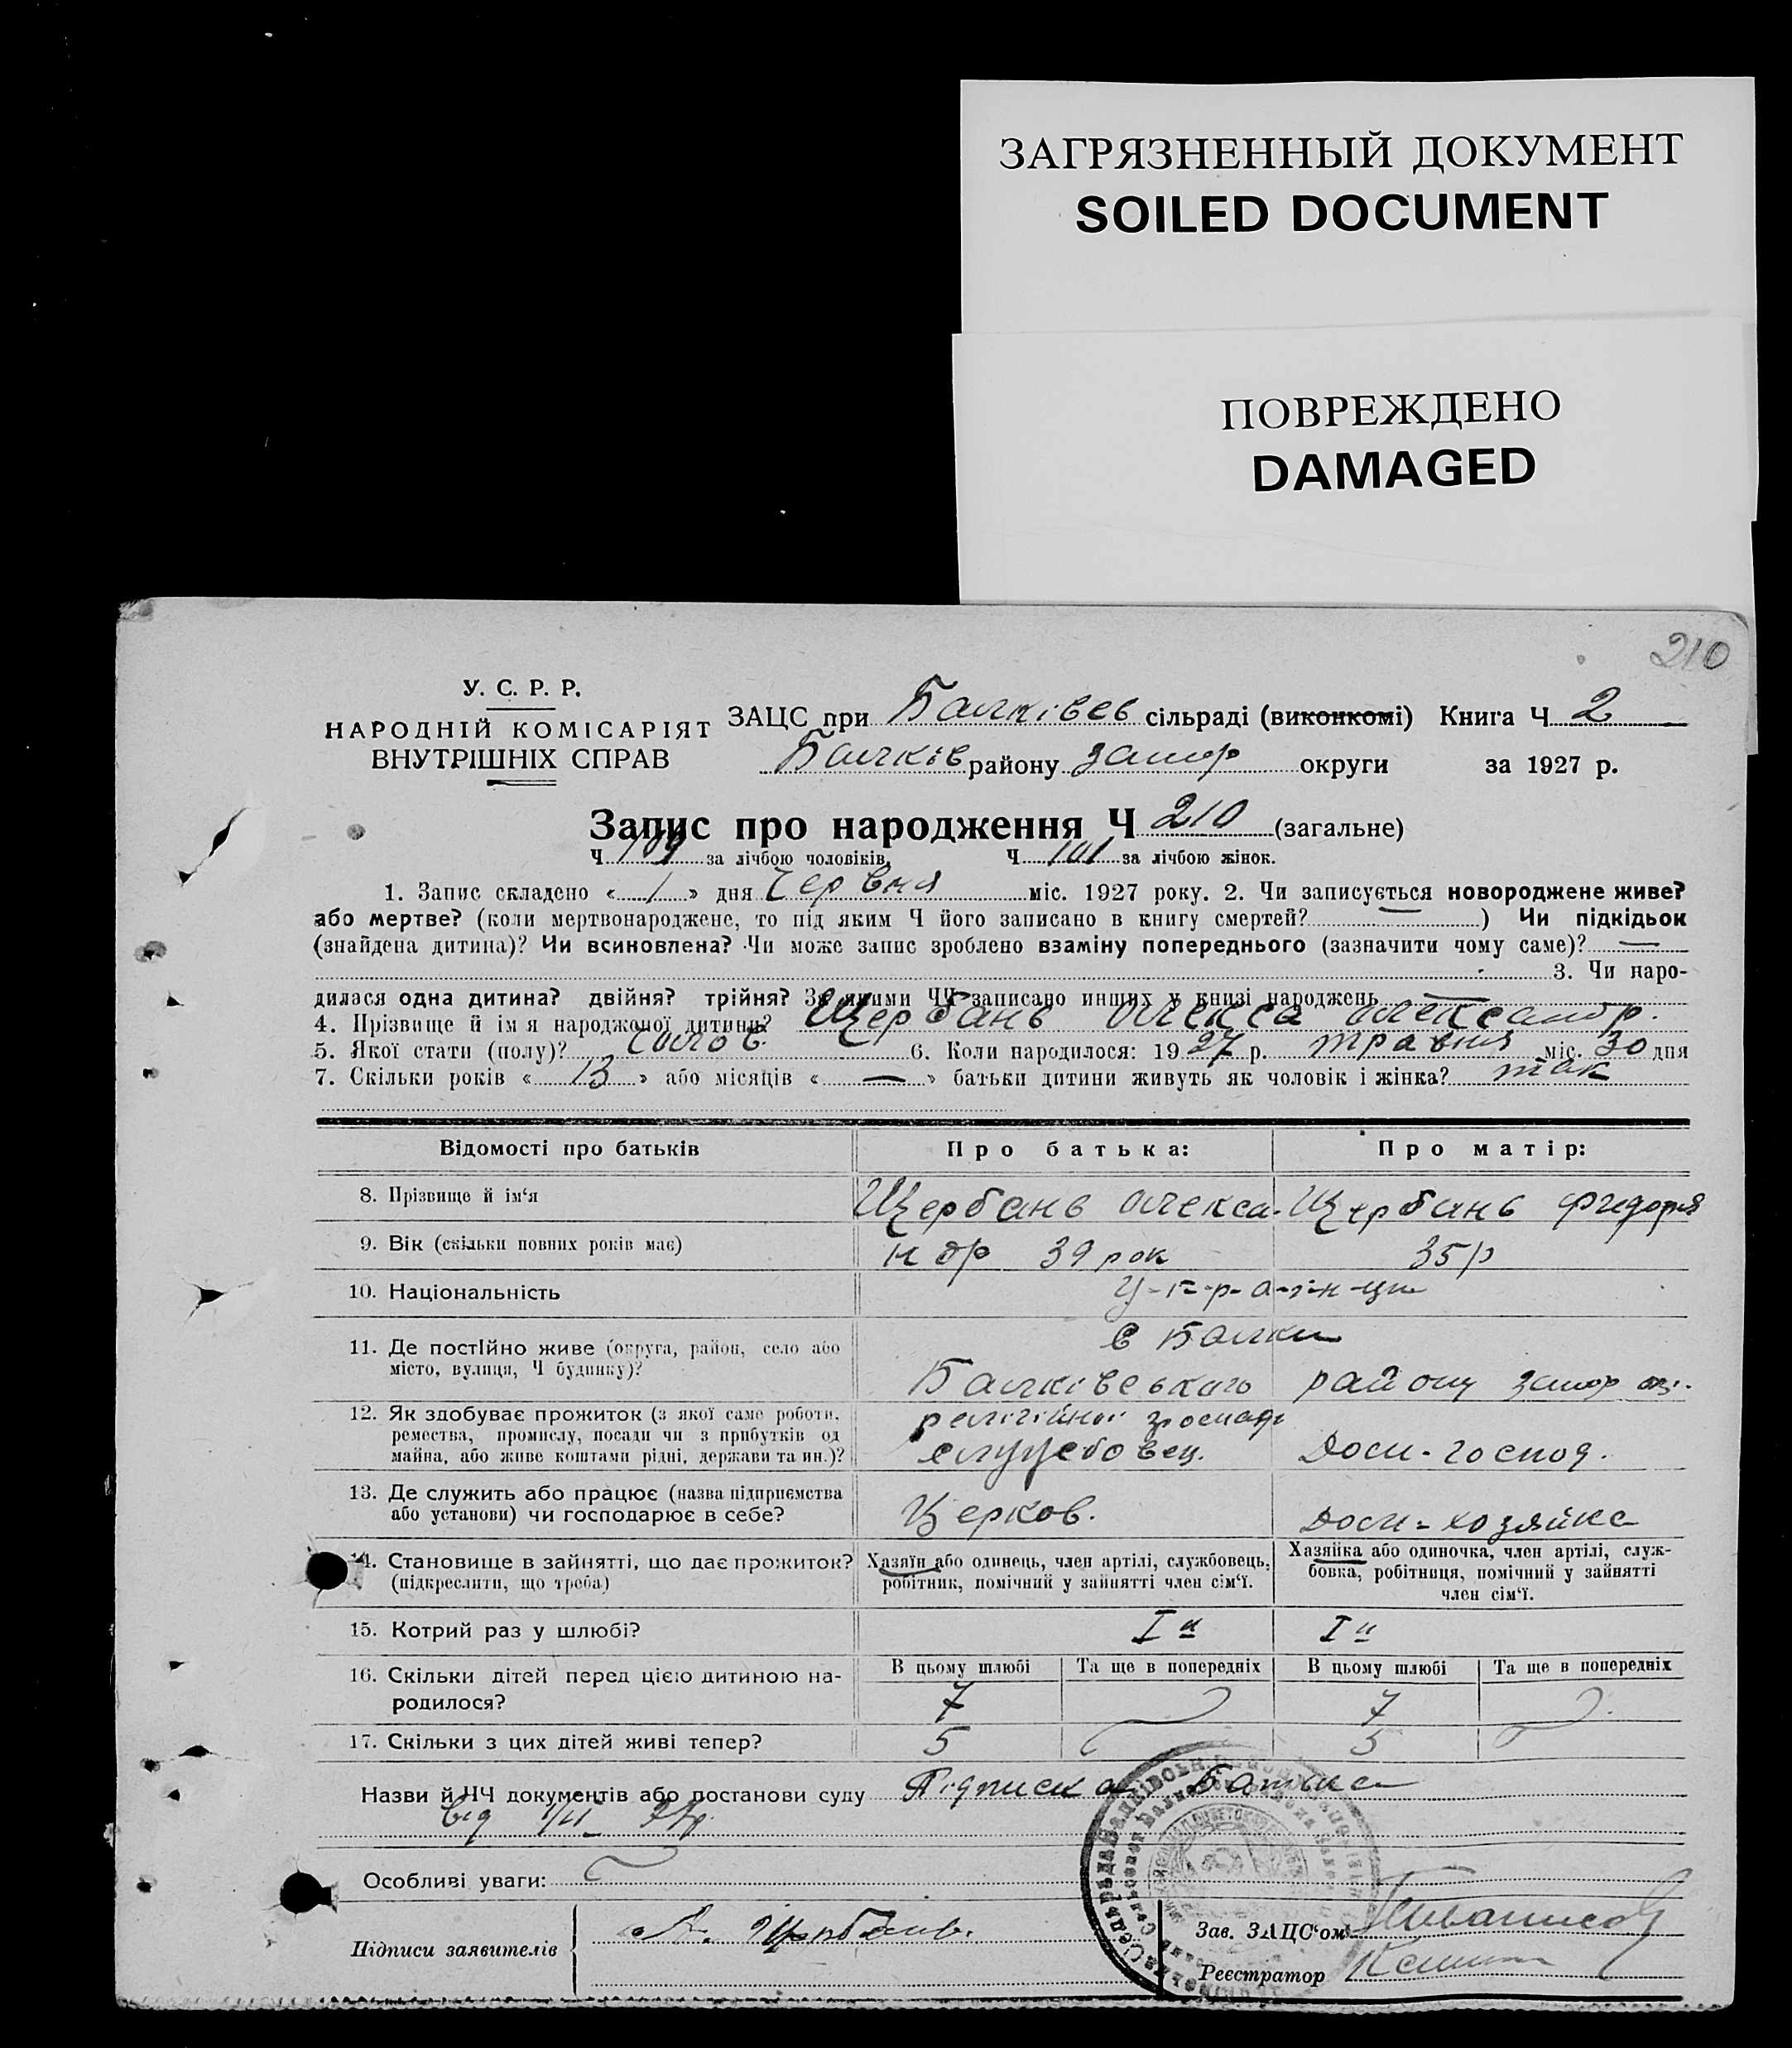 ЗАГРЯЗНЕННЫЙ ДОКУМЕНТ
SOILED DOCUMENT
ПОВРЕЖДЕНО
DAMAGED
210
У. С. Р. Р.
НАРОДНІЙ КОМІСАРІЯТ
ВНУТРІШНІХ СПРАВ
ЗАЦС при Балківсь сільраді (виконкомі) Книга Ч 2
Балків району запор округи за 1927 р.
Запис про народження Ч 210 (загальне)
Ч 109 за лічбою чоловіків, Ч 101 за лічбою жінок.
1. Запис складено « 1 » дня Червня міс. 1927 року. 2. Чи записується новороджене живе?
або мертве? (коли мертвонароджене, то під яким Ч його записано в книгу смертей? — ) Чи підкідьок
(знайдена дитина)? Чи всиновлена? Чи може запис зроблено взаміну попереднього (зазначити чому саме)? —
3. Чи наро-
дилася одна дитина? двійня? трійня? За якими ЧЧ записано инших у книзі народжень —
4. Прізвище й ім'я народженої дитини? Щербань Олекса Олександр.
5. Якої стати (полу)? Чолов. 6. Коли народилося: 1927 р. травня міс. 30 дня
7. Скільки років « 13 » або місяців « — » батьки дитини живуть як чоловік і жінка? так
Відомості про батьків Про батька: Про матір:
8. Прізвище й ім‘я Щербань Олекса- Щербань Фидорія
9. Вік (скільки повних років має) ндр 39 рок 35 р
10. Національність У-к-р-а-ї-н-ци
11. Де постійно живе (округа, район, село або
місто, вулиця, Ч будинку)?
с Балки
Балківського району запор ок.
12. Як здобуває прожиток (з якої саме роботи,
ремества, промислу, посади чи з прибутків од
майна, або живе коштами рідні, держави та ин.)?
релігійної громади
службовец. Дом-господ.
13. Де служить або працює (назва підприємства
або установи) чи господарює в себе?
Церков. Дом-хозяйка
14. Становище в зайнятті, що дає прожиток?
(підкреслити, що треба)
Хазяїн або одинець, член артілі, службовець,
робітник, помічний у зайнятті член сім‘ї.
Хазяйка або одиночка, член артілі, служ-
бовка, робітниця, помічний у зайнятті
член сім‘ї.
15. Котрий раз у шлюбі? I й I й
16. Скільки дітей перед цією дитиною на-
родилося?
В цьому шлюбі Та ще в попередніх В цьому шлюбі Та ще в попередніх
7 7
17. Скільки з цих дітей живі тепер? 5 5
Назви й ЧЧ документів або постанови суду Підписка Батька
Особливі уваги:
Підписи заявителів А. Щербань.
Зав. ЗАЦС‘ом
Реєстратор